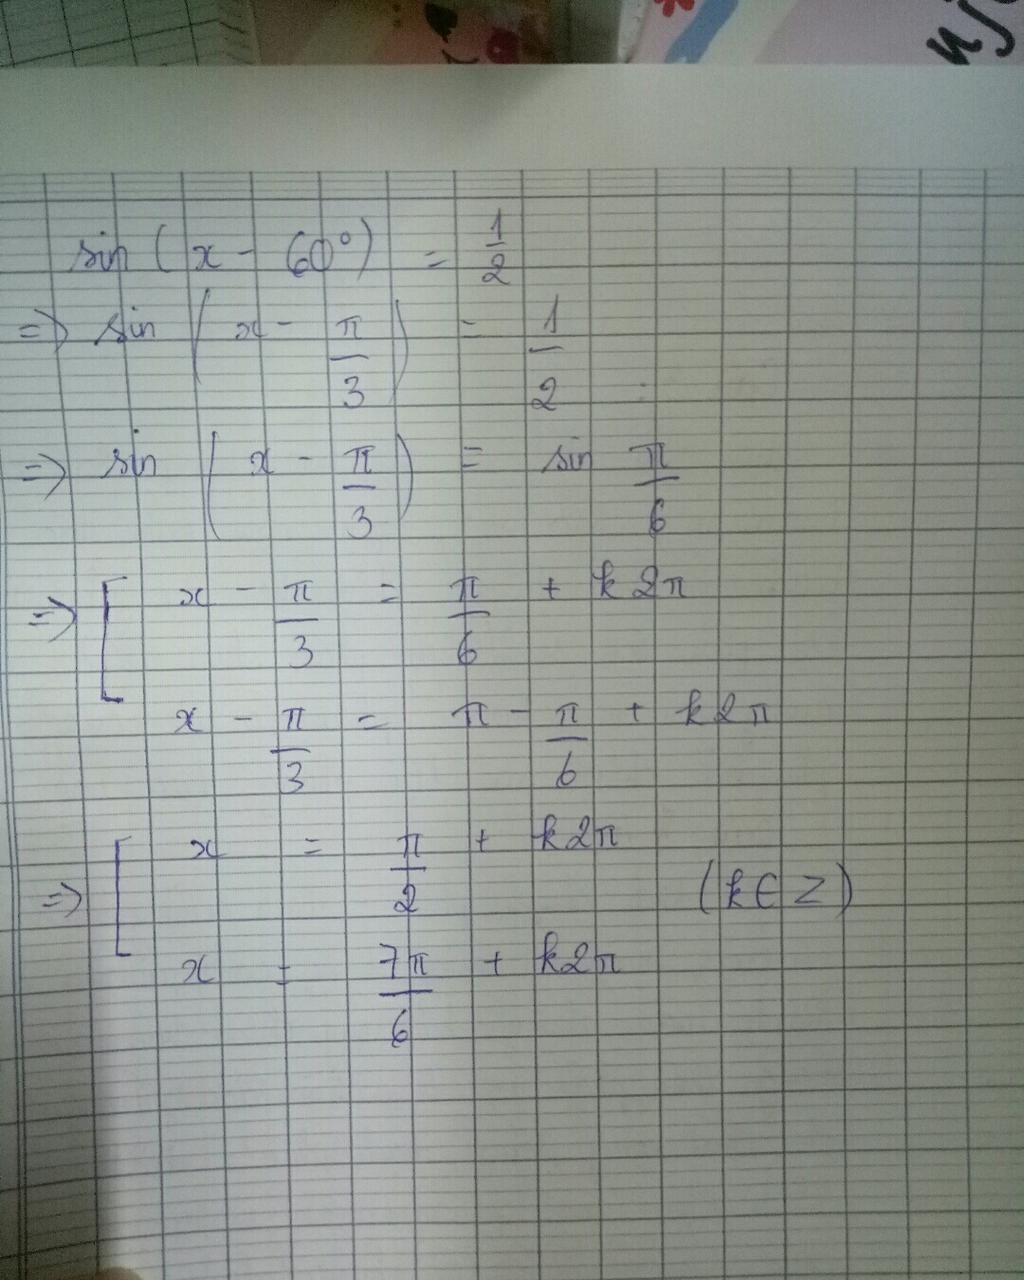 sin ( x - 60° ) = 1/2
=> sin ( x - π/3 ) = 1/2
=> sin ( x - π/3 ) = sin π/6
=> [ x - π/3 = π/6 + k2π
x - π/3 = π - π/6 + k2π
=> [ x = π/2 + k2π
(k∈Z)
x = 7π/6 + k2π